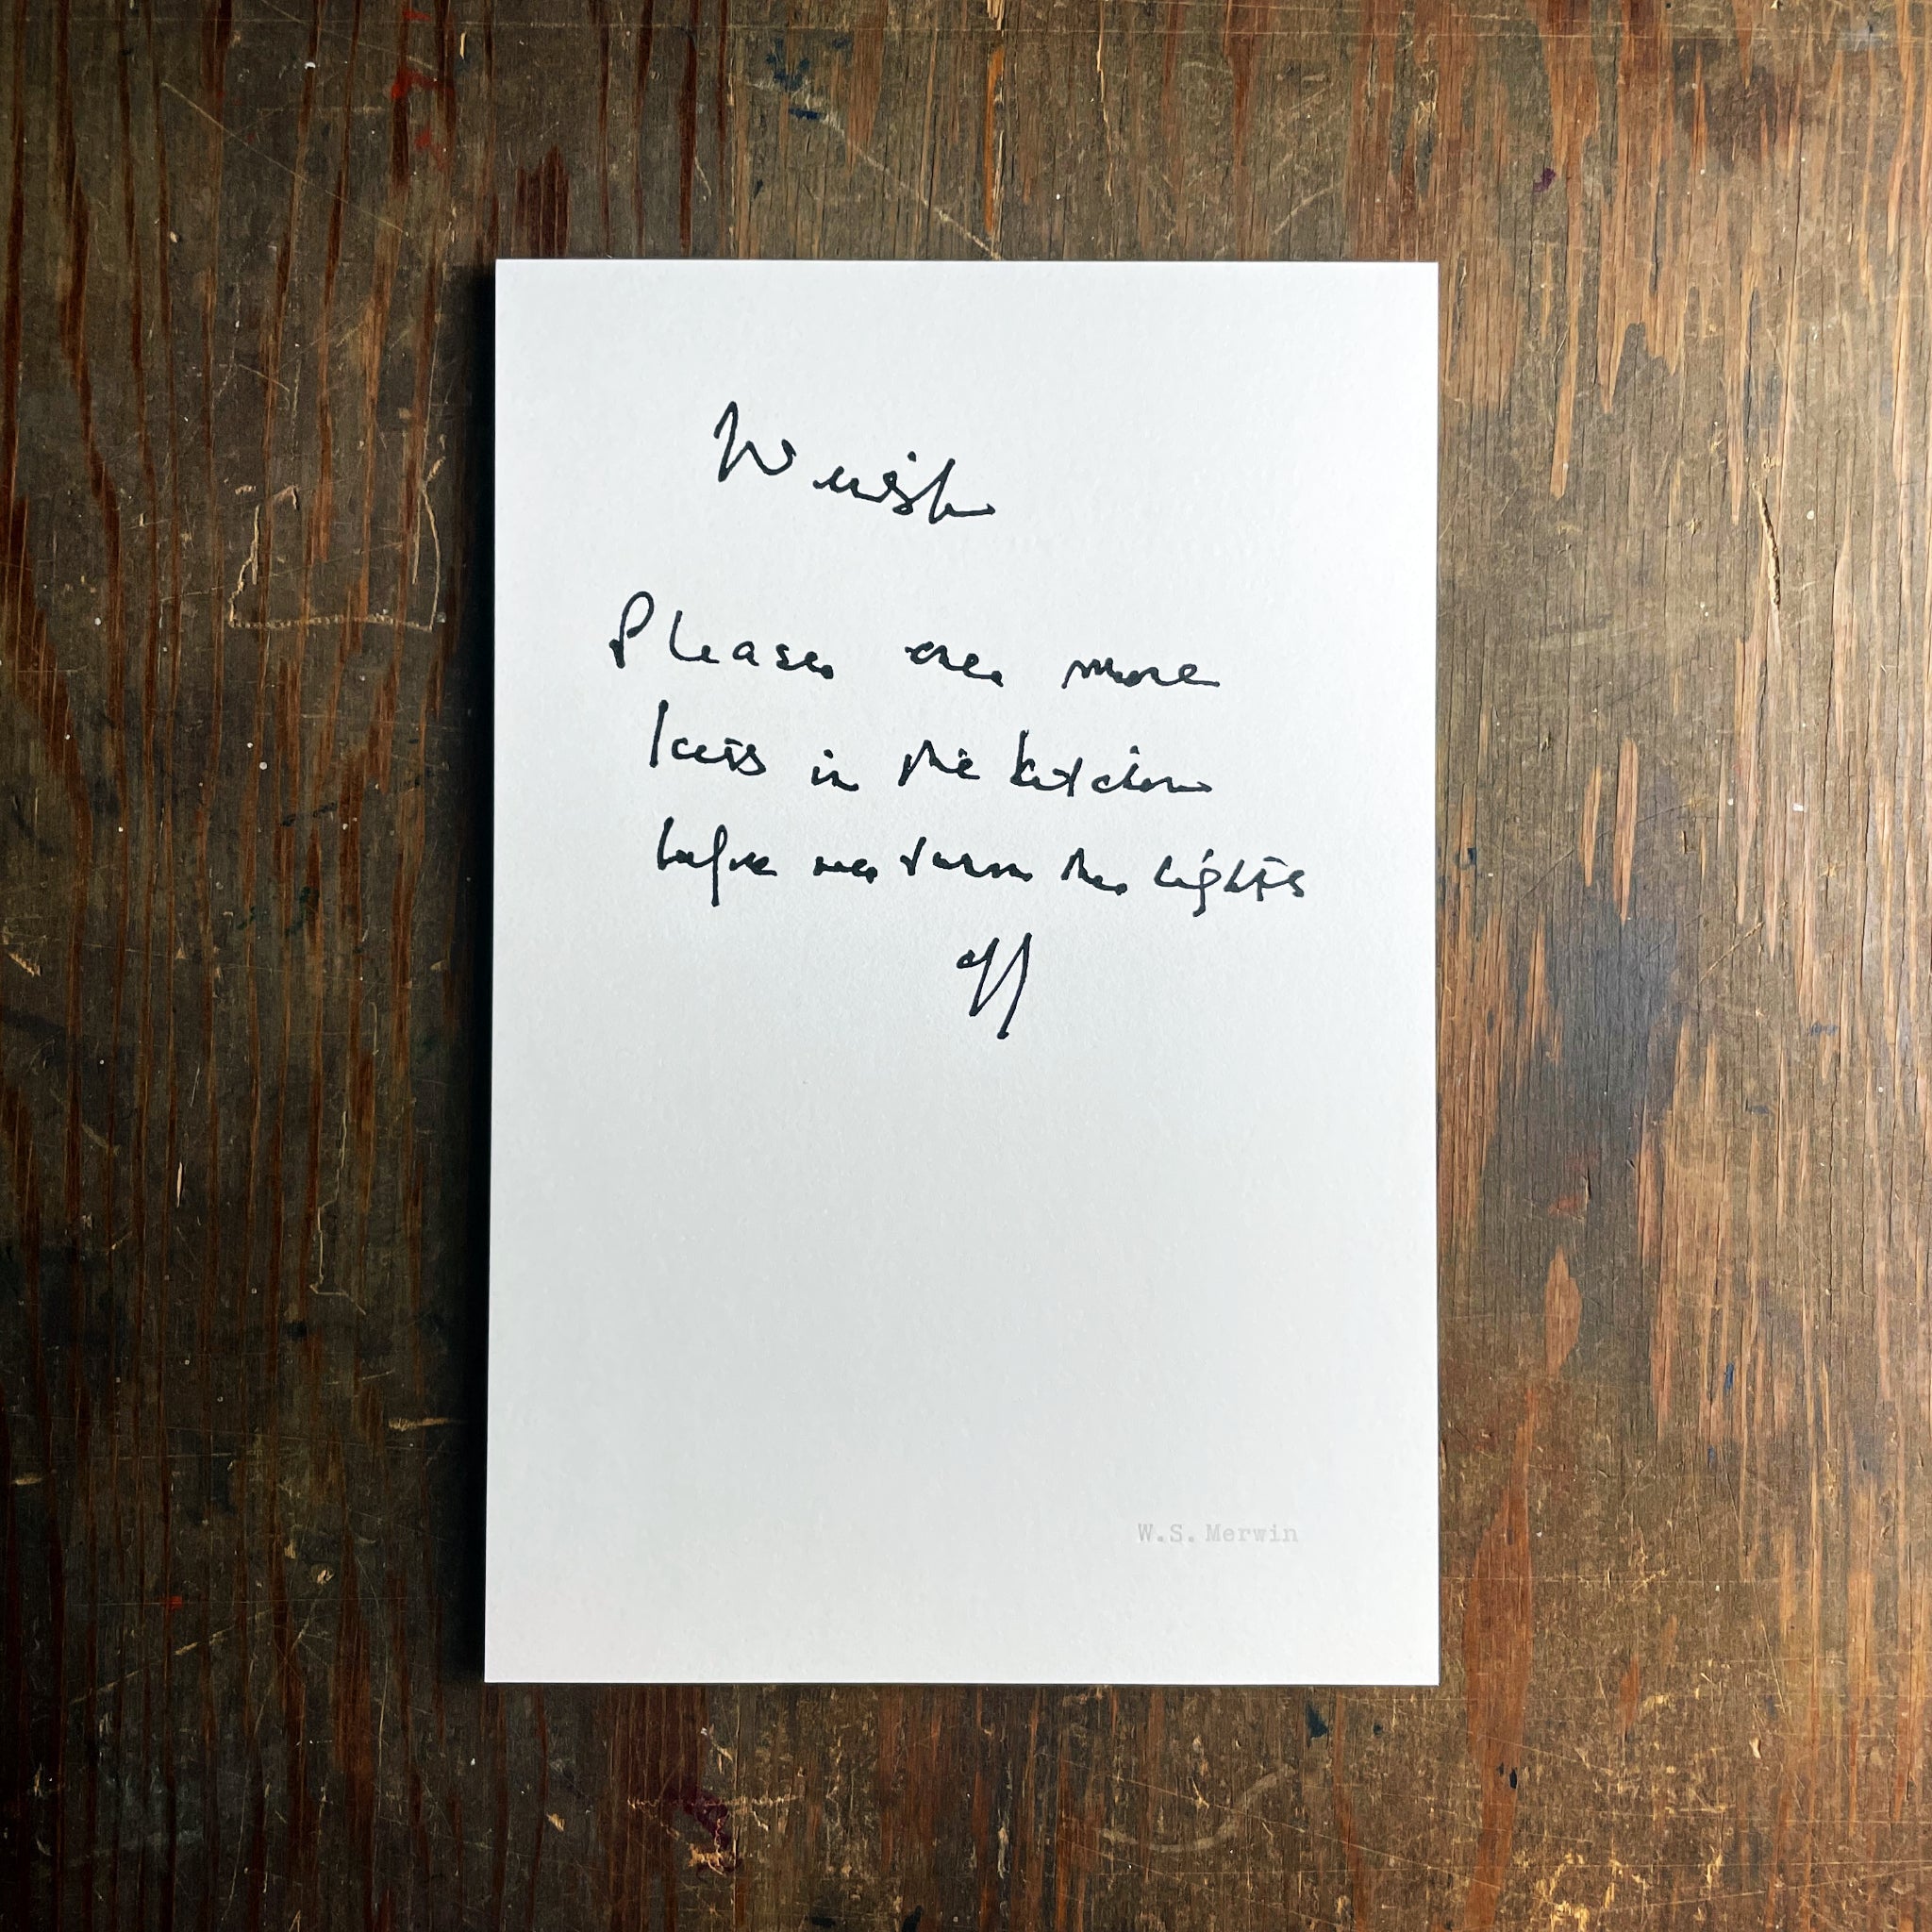 Wish
Please one more
kiss in the kitchen
before we turn the lights
off
W.S. Merwin